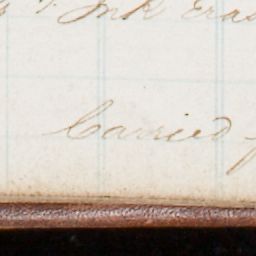 Ink Eras
Carried f